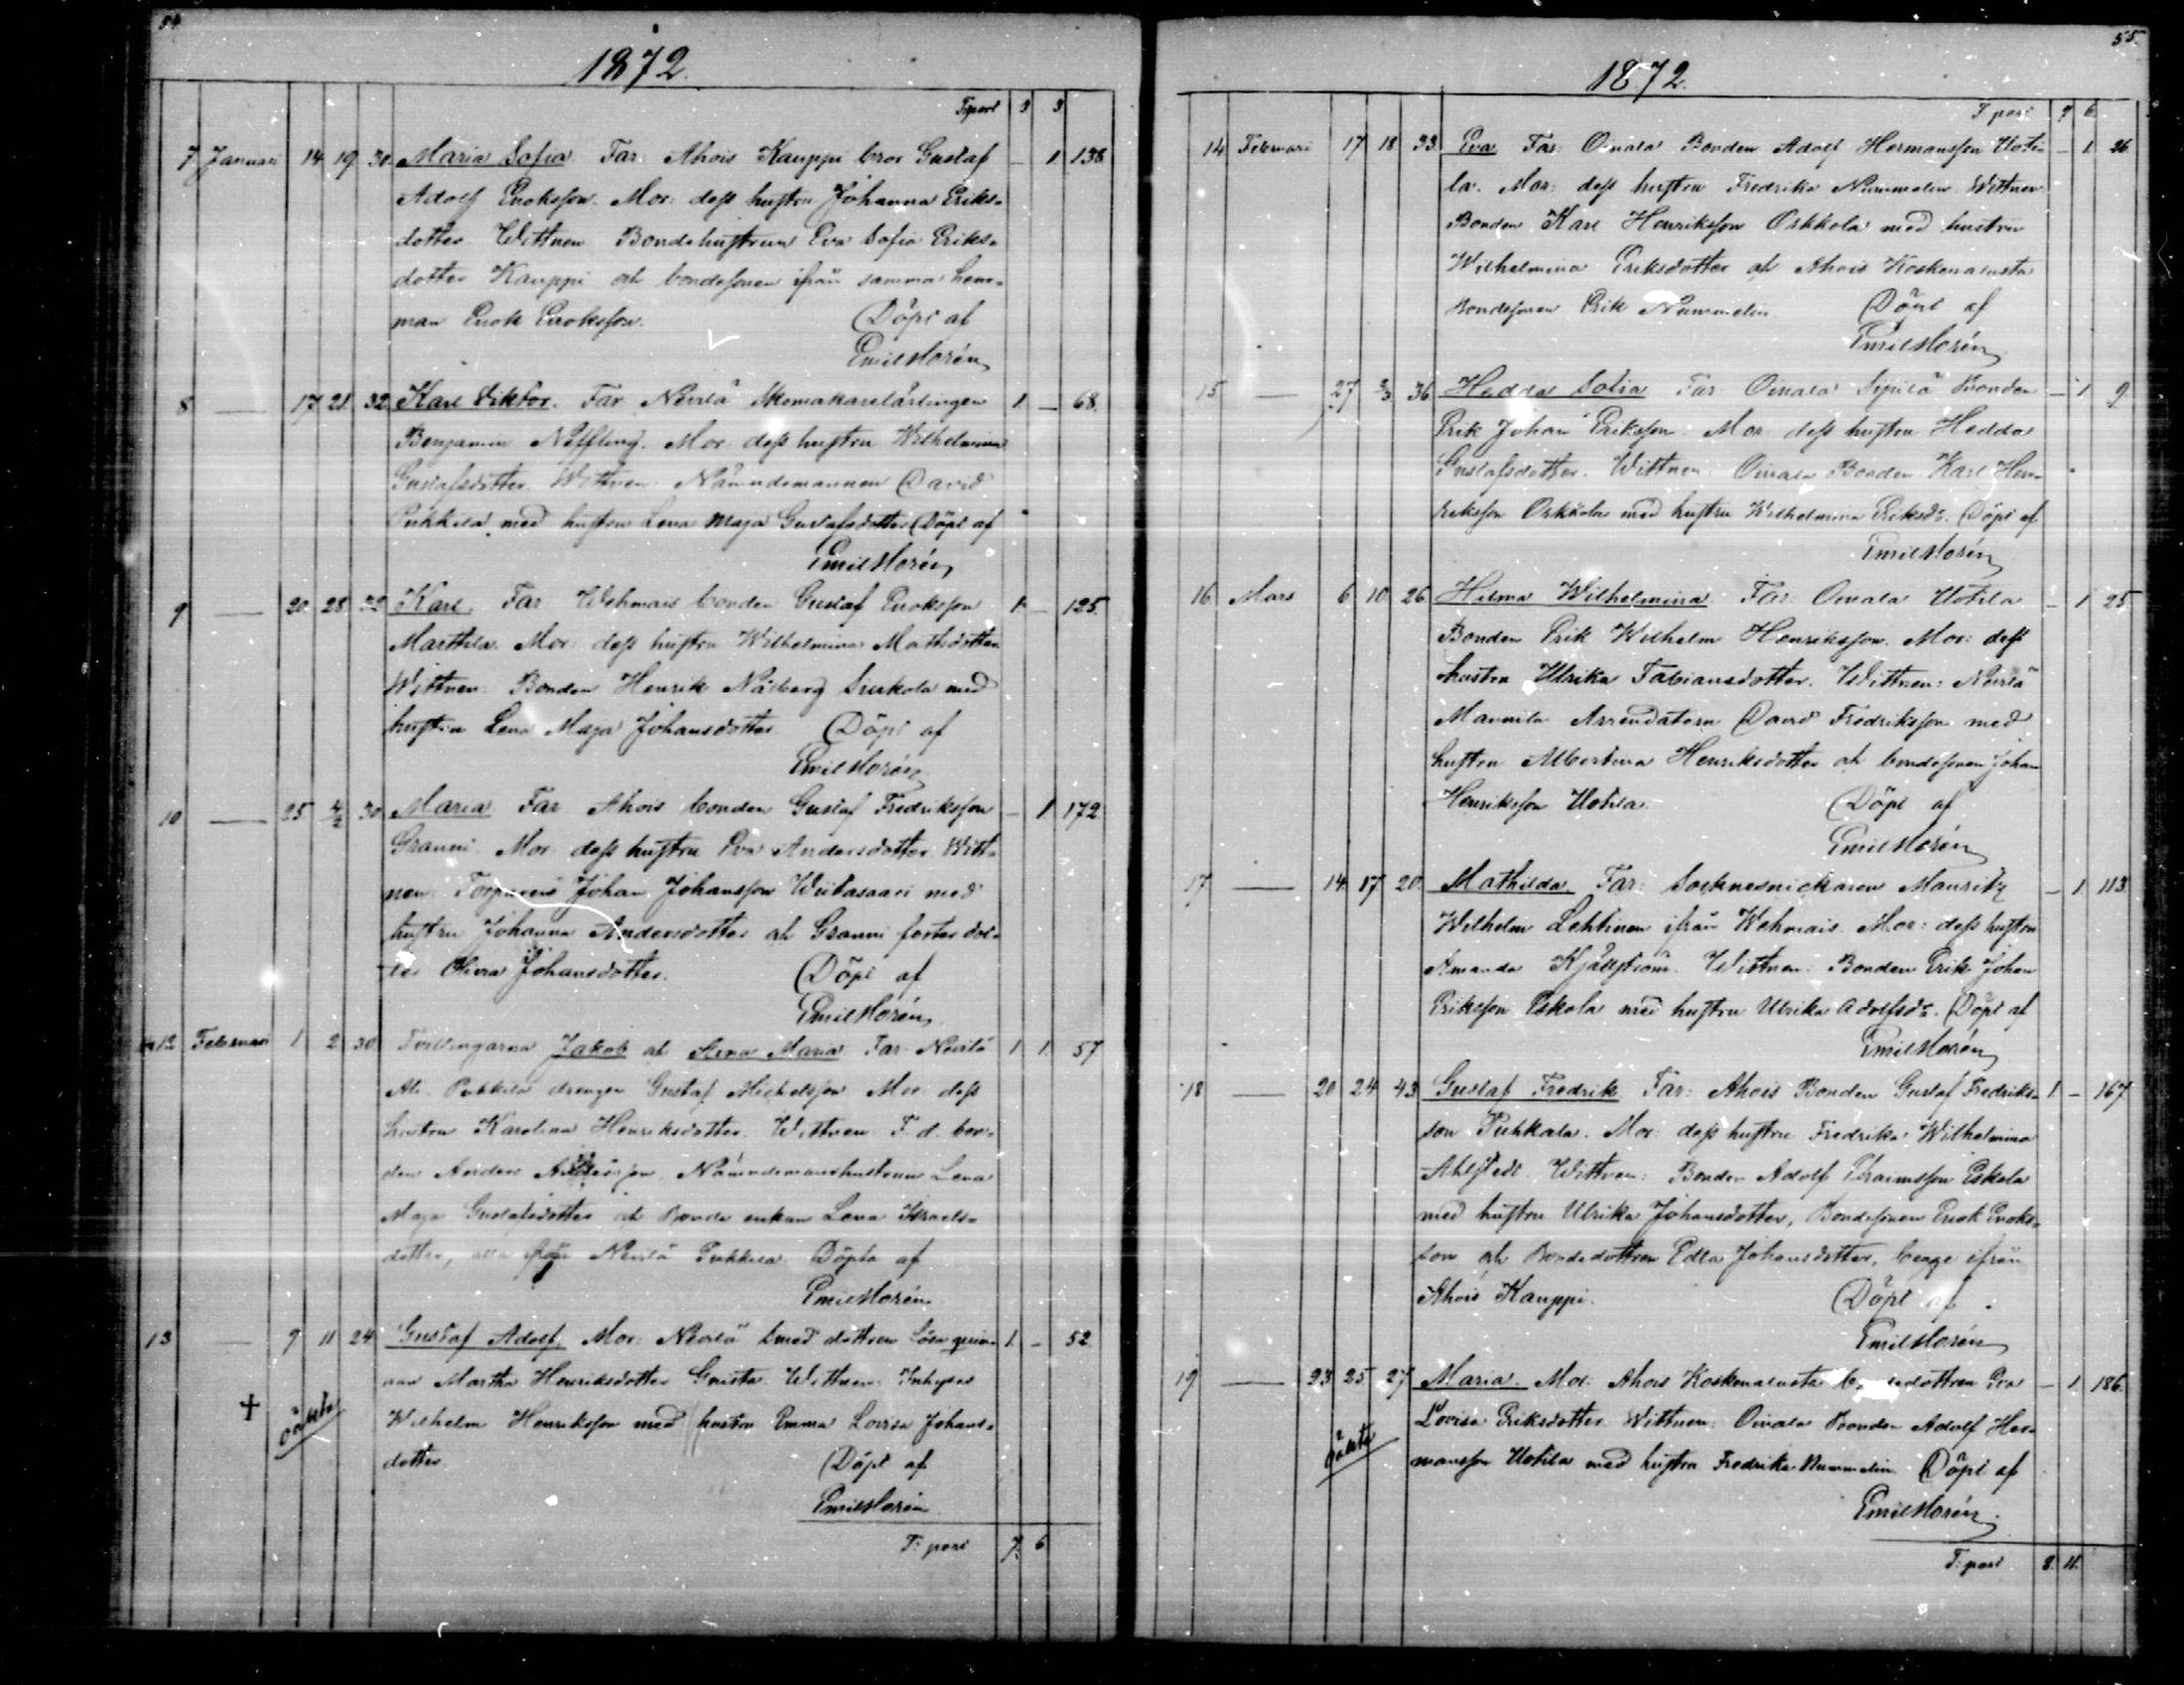 54
1872.
Tpost 3 3
7 Januari 14 19 30 Maria Sofia Far: Ahois Kauppi bror Gustaf – 1 138
Adolf Enoksson. Mor: dess hustru Johanna Eriks-
dotter Wittnen Bondehustrun Eva Sofia Eriks-
dotter Kauppi och bondesonen ifrån samma hem-
man Enok Enoksson. Döpt af
Emil Morén
8 — 17 21 32 Karl Viktor. Far Nevilä Skomakarelärlingen 1 – 68.
Benjamin Mor dess hustru Wilhelmina
Gustafsdotter Wittnen Nämndemannen David
Pukkila med hustru Lena Maja Gustafsdotter Döpt af
Emil Morén
9 — 20 28 32 Karl. Far Wehmais bonden Gustaf Enoksson 1 – 125.
Marttila. Mor: dess hustru Wilhelmina Mattsdotter
Wittnen Bonden Henrik Siukola med
hustru Lena Maja Johansdotter Döpt af
Emil Morén
10 — 25 4/2 30 Maria Far Ahois bonden Gustaf Fredriksson – 1 172
Granni Mor dess hustru Eva Andersdotter Witt-
nen Torparen Johan Johansson Wiitasaari med
hustru Johanna Andersdotter och Granni foster dot-
ter Olivia Johansdotter. Döpt af
Emil Morén
12 Februari 1 2 30 Tvillingarna Jakob och Stena Maria Far Nevilä 1 1 57
Ali Pukkila drengen Gustaf Michelsson Mor dess
hustru Karolina Henriksdotter. Wittnen F. d. bon-
den Anders Nämndemanshustrun Lena
Maja Gustafsdotter och Bonde enkan Lena Israels-
dotter, alla från Nevilä Pukkila Döpta af
Emil Morén
13 — 9 11 24 Gustaf Adolf. Mor: Nevilä smed dottren lösa qvin- 1 – 52.
nan Martha Henriksdotter Wittnen: Inhyses
† oäkta Wilhelm Henriksson med hustru Emma Lovisa Johans-
dotter Döpt af
Emil Morén
T: post 7. 6
55.
1872.
T post 7 6
14 Februari 17 18 33 Eva Far: Oinala Bonden Adolf Hermansson Uoti- – 1 26
la. Mor: dess hustru Fredrika Nummelin Wittnen
Bonden Karl Henriksson Orkkola med hustru
Wilhelmina Eriksdotter och Ahois Koskenalusta
Bondesonen Erik Nummelin Döpt af
Emil Morén
15 — 27 2/3 36 Hedda Sofia Far Oinala Sipilä Bonden – 1 9
Erik Johan Eriksson. Mor dess hustru Hedda
Gustafsdotter. Wittnen: Oinala Bonden Karl Hen-
riksson Orkkola med hustru Wilhelmina Eriksdr. Döpt af
Emil Morén
16 Mars 6 10 26 Hilma Wilhelmina Far: Oinala Uotila – 1 25
Bonden Erik Wilhelm Henriksson. Mor: dess
hustru Ulrika Fabiansdotter. Wittnen: Nevilä
Mannila Arrendatorn David Fredriksson med
hustru Albertina Henriksdotter och bondesonen Johan
Henriksson Uotila. Döpt af
Emil Morén
17 — 14 17 20 Mathilda Far: Socknesnickaren Mauritz – 1 113.
Wilhelm Lehtinen ifrån Wehmais. Mor: dess hustru
Amanda Kjällström. Wittnen: Bonden Erik Johan
Eriksson Eskola med hustru Ulrika Adolfsdr. Döpt af
Emil Morén
18 — 20 24 43 Gustaf Fredrik Far: Ahois Bonden Gustaf Fredriks- 1 – 167
son Puhkala. Mor dess hustru Fredrika Wilhelmina
Ahlstedt Wittnen: Bonden Adolf Efraimsson Eskola
med hustru Ulrika Johansdotter, Bondesonen Enok Enoks-
son och Bondedottren Edla Johansdotter, begge ifrån
Ahois Kauppi. Döpt af
Emil Morén
19 — 23 25 27 Maria Mor: Ahois Koskenalusta bondedottren Eva – 1 186.
Lovisa Eriksdotter Wittnen: Oinala Bonden Adolf Her-
oäkta mansson Uotila med hustru Fredrika Nummelin Döpt af
Emil Morén.
T: post 8. 11.